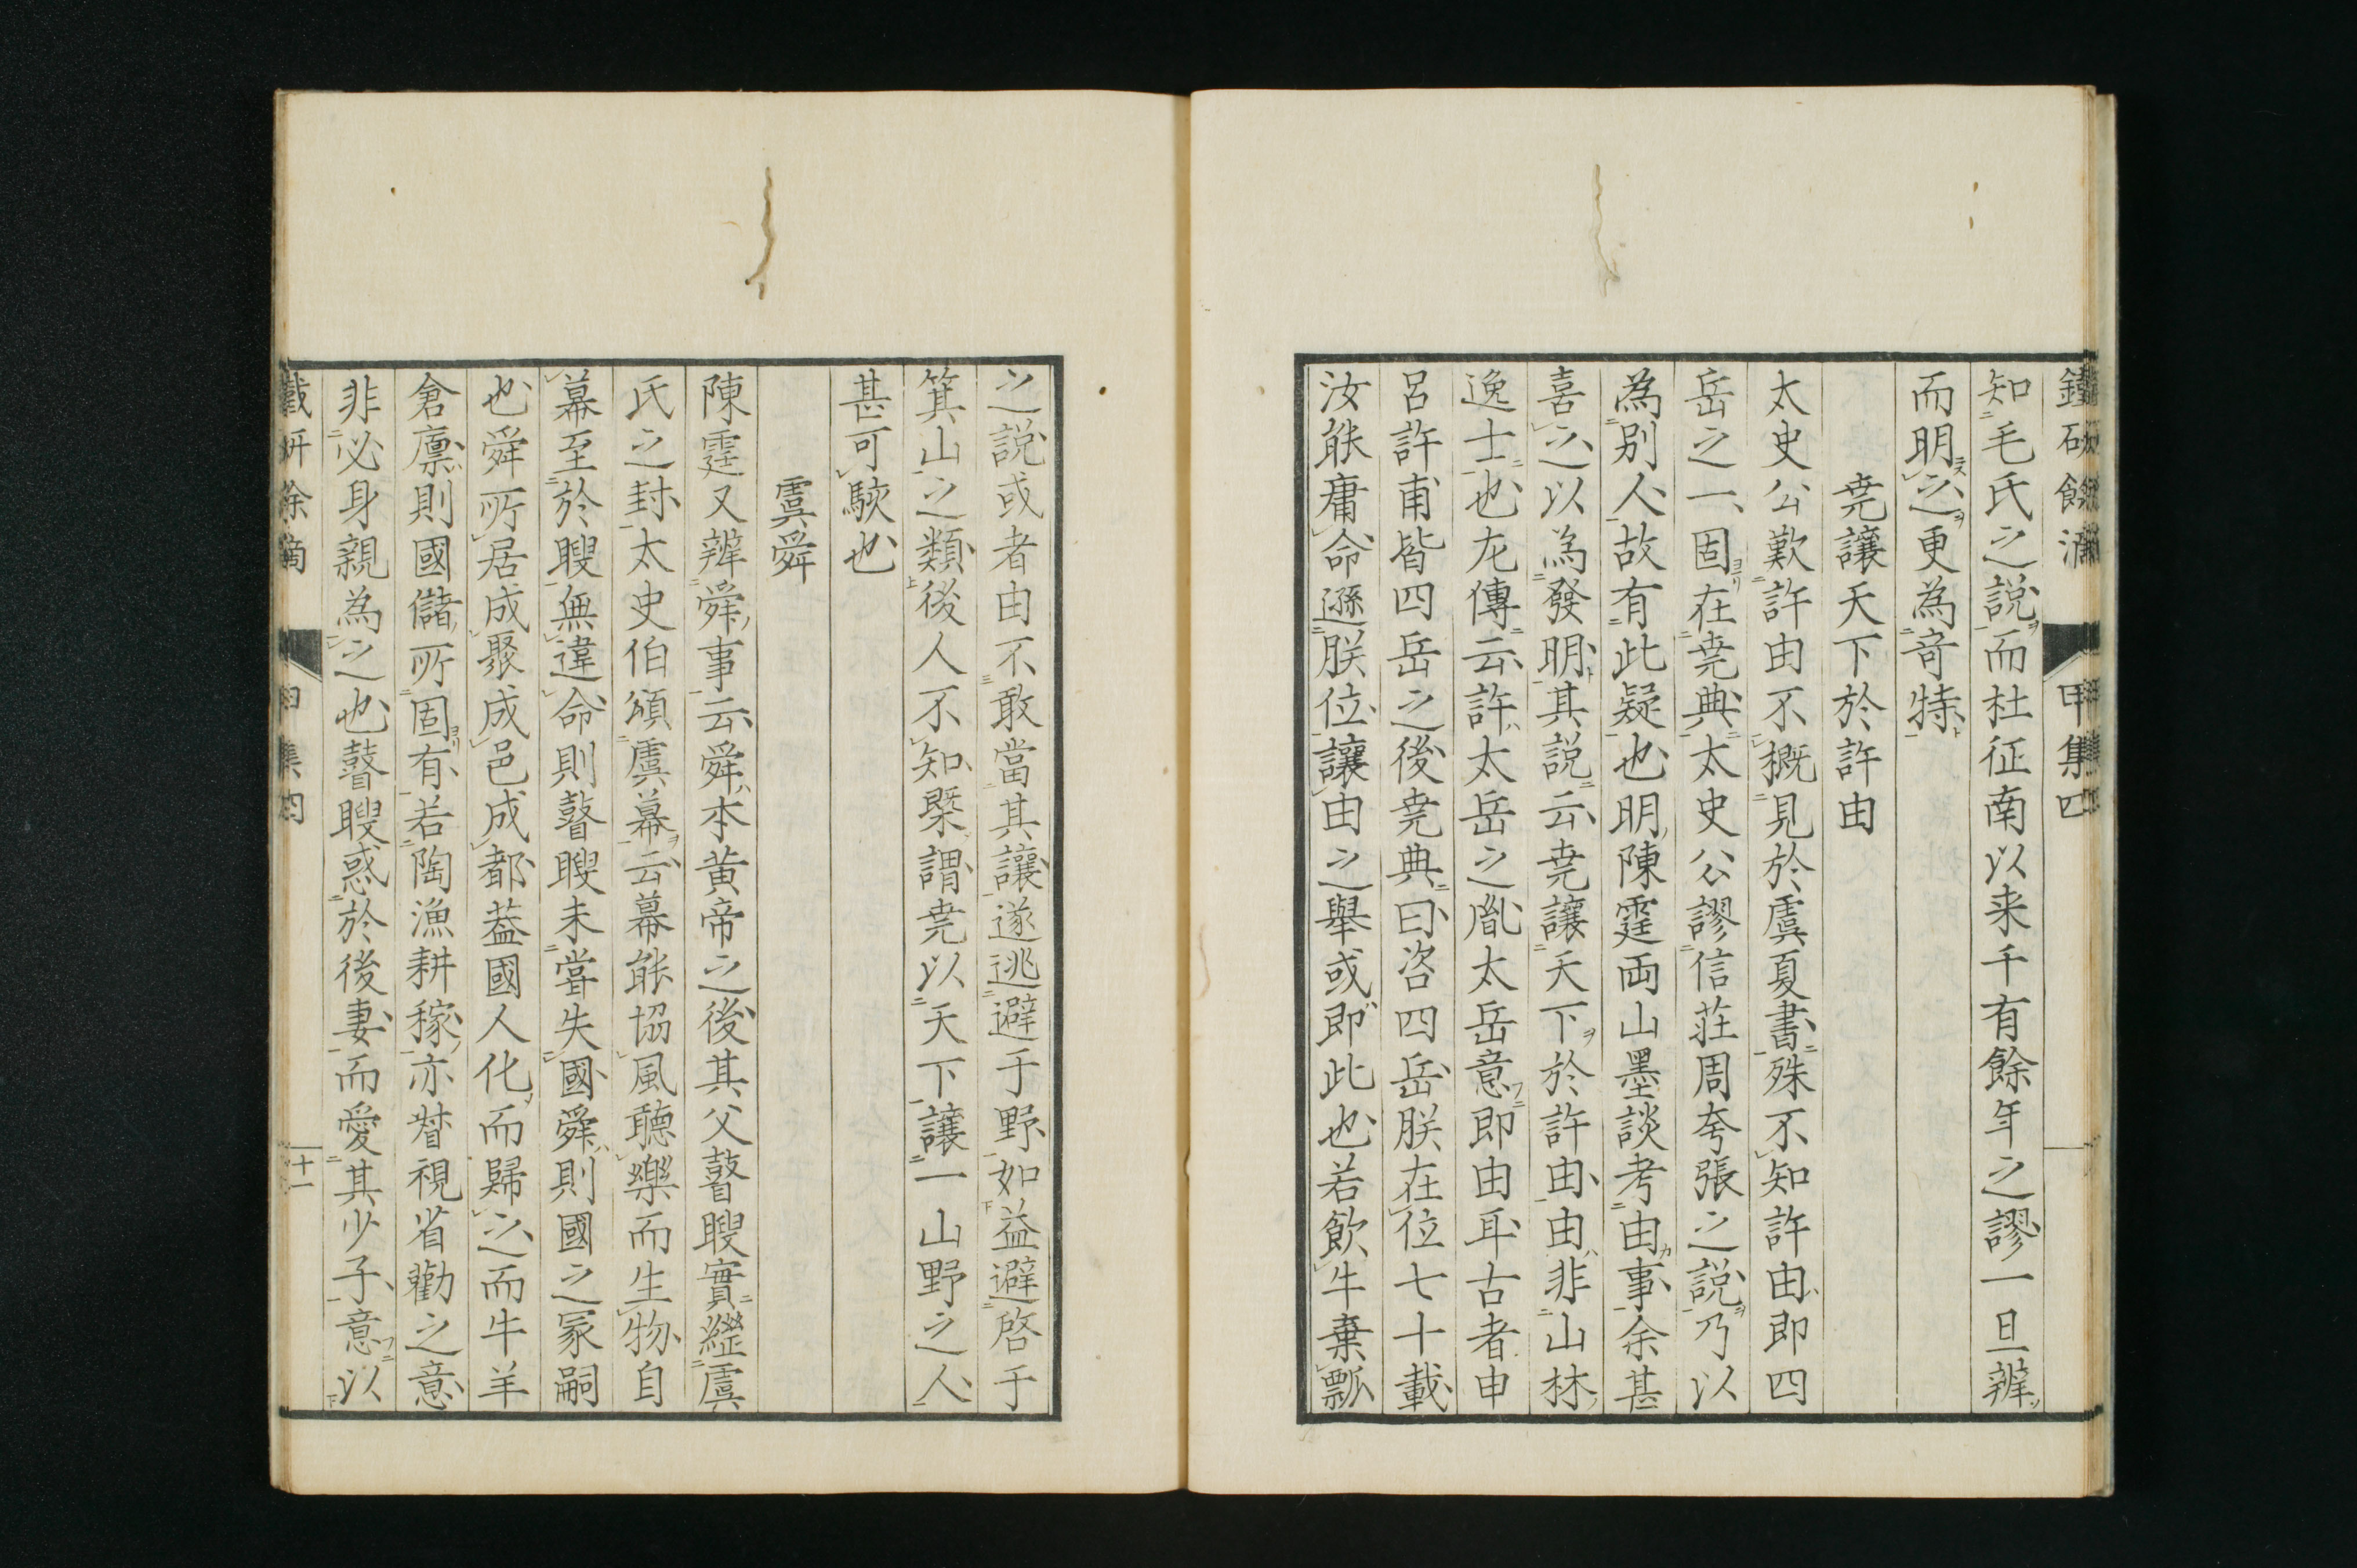 鐵研餘滴 甲集四
知毛氏之説而杜征南以来千有餘年之謬一旦辨
而明之更為竒特
堯讓天下於許由
太史公歎許由不概見於虞夏書殊不知許由即四
岳之一固在堯典太史公謬信莊周夸張之説乃以
為別人故有此疑也明陳霆両山墨談考由事余甚
喜之以為發明其説云堯讓天下於許由由非山林
逸士也左傳云許太岳之胤太岳意即由耳古者申
呂許甫皆四岳之後堯典曰咨四岳朕在位七十載
汝能庸命遜朕位讓由之舉或即此也若飲牛棄瓢
之説或者由不敢當其讓遂逃避于野如益避啓于
箕山之類後人不知槩謂堯以天下讓一山野之人
甚可駭也
虞舜
陳霆又辨舜事云舜本黄帝之後其父瞽瞍實繼虞
氏之封太史伯頌虞幕云幕能協風聽樂而生物自
幕至於瞍無違命則瞽瞍未嘗失國舜則國之冢嗣
也舜所居成聚成邑成都葢國人化而歸之而牛羊
倉廪則國儲所固有若陶漁耕稼亦督視省勸之意
非必身親為之也瞽瞍惑於後妻而愛其少子意以
鐵研餘滴 甲集四 十一